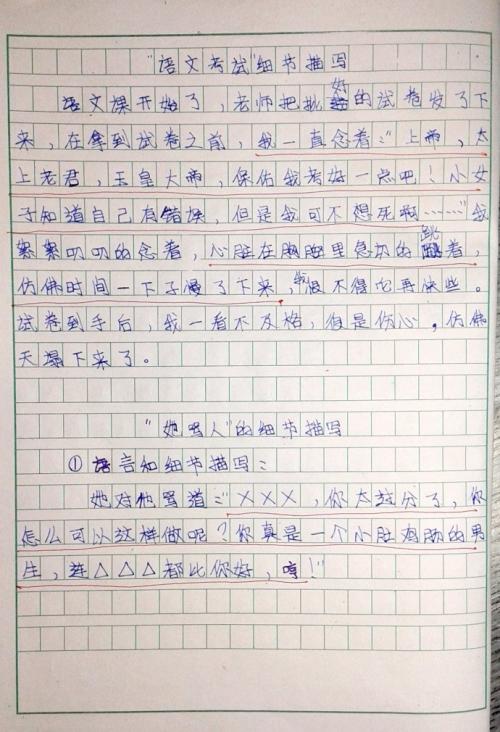 "语文考试"细节描写
语文课开始了，老师把批好的试卷发了下
来，在拿到试卷之前，我一直念着："上帝，太
上老君，玉皇大帝，保佑我考好一点吧！小女
子知道自己有错误，但是我可不想死啊……"我
絮絮叨叨的念着，心脏在胸膛里急切的跳着，
仿佛时间一下子慢了下来，我恨不得它再快些。
试卷到手后，我一看不及格，很是伤心。仿佛
天塌下来了。
"她骂人"的细节描写
①语言和细节描写：
她对他骂道："×××，你太过分了，你
怎么可以这样做呢？你真是一个小肚鸡肠的男
生，连△△△都比你好，哼！"